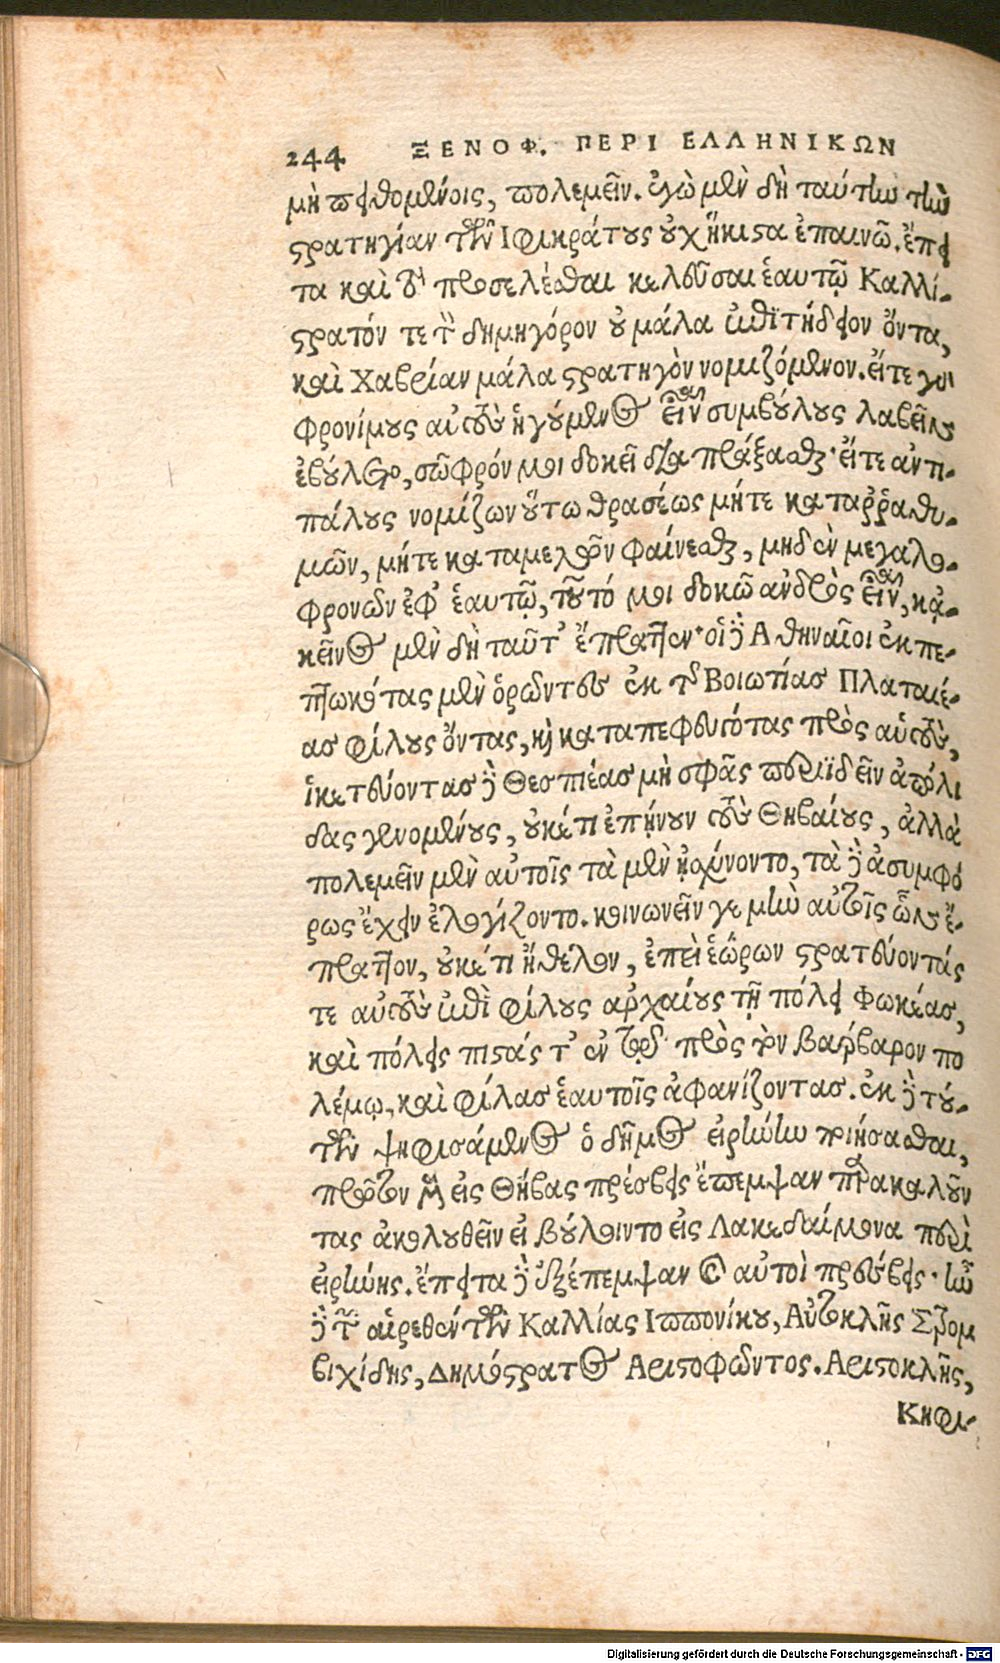 244 ΞΕΝΟΦ. ΠΕΡΙ ΕΛΛΗΝΙΚΩΝ
μὴ πειθομένοις, πολεμεῖν. ἐγὼ μὲν δὴ ταύτην τὴν
στρατηγίαν τῶν Ἰφικράτους οὐχ ἥκιστα ἐπαινῶ. ἔπει
τα καὶ τὸ προσελέσθαι κελεῦσαι ἑαυτῷ Καλλί-
στρατόν τε τὸν δημηγόρον οὐ μάλα ἐπιτήδειον ὄντα,
καὶ Χαβρίαν μάλα στρατηγὸν νομιζόμενον. εἴτε γὰρ
φρονίμους αὐτοὺς ἡγούμενος εἶναι συμβούλους λαβεῖν
ἐβούλετο, σῶφρόν μοι δοκεῖ διαπράξασθαι· εἴτε ἀντι-
πάλους νομίζων οὕτω θρασέως μήτε καταῤῥαθυ-
μῶν, μήτε καταμελῶν φαίνεσθαι, μηδὲν μεγαλο-
φρονῶν ἐφ' ἑαυτῷ, τοῦτό μοι δοκῶ ἀνδρὸς εἶναι, κἀ-
κεῖνος μὲν δὴ ταῦτ' ἔπραττεν· οἱ δὲ Ἀθηναῖοι ἐκπε-
πτωκότας μὲν ὁρῶντες ἐκ τῆς Βοιωτίας Πλαταιέ-
ας φίλους ὄντας, καὶ καταπεφευγότας πρὸς αὑτοὺς,
ἱκετεύοντας δὲ Θεσπιέας μὴ σφᾶς περιϊδεῖν ἀπόλι
δας γενομένους, οὐκέτι ἐπῄνουν τοὺς Θηβαίους, ἀλλὰ
πολεμεῖν μὲν αὐτοῖς τὰ μὲν ᾐσχύνοντο, τὰ δὲ ἀσυμφό
ρως ἔχειν ἐλογίζοντο. κοινωνεῖν γε μὴν αὐτοῖς ὧν ἔ-
πραττον, οὐκέτι ἤθελον, ἐπεὶ ἑώρων στρατεύοντάς
τε αὐτοὺς ἐπὶ φίλους ἀρχαίους τῇ πόλει Φωκέας,
καὶ πόλεις πιστάς τ' ἐν τῷ πρὸς τὸν βάρβαρον πο
λέμῳ, καὶ φίλας ἑαυτοῖς ἀφανίζοντας. ἐκ δὲ τού-
των ψηφισάμενος ὁ δῆμος εἰρήνην ποιήσασθαι,
πρῶτον μὲν εἰς Θήβας πρέσβεις ἔπεμψαν παρακαλοῦν
τας ἀκολουθεῖν εἰ βούλοιντο εἰς Λακεδαίμονα περὶ
εἰρήνης. ἔπειτα δὲ ἐξέπεμψαν καὶ αὐτοὶ πρέσβεις· ἦν
δὲ τῶν αἱρεθέντων Καλλίας Ἱππονίκου, Αὐτοκλῆς Στρομ
βιχίδης, Δημόστρατος Ἀριστοφῶντος. Ἀριστοκλῆς,
Κηφι-
Digitalisierung gefördert durch die Deutsche Forschungsgemeinschaft - DFG